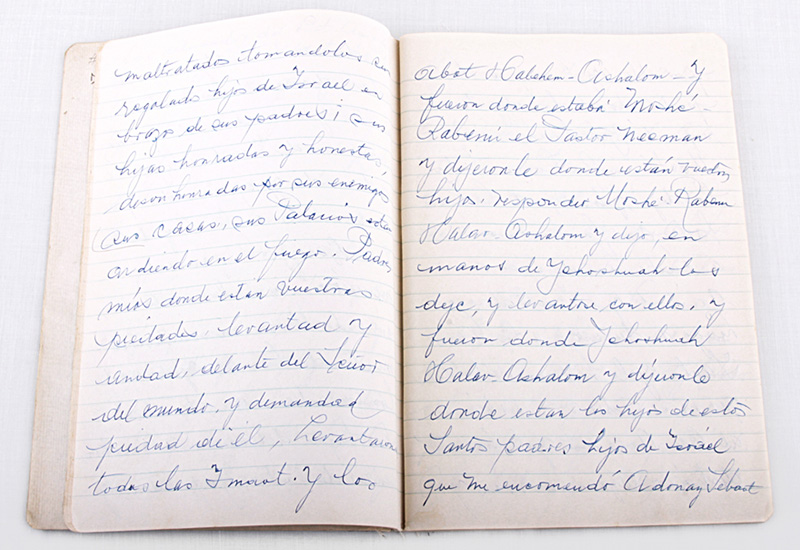 maltratados tomandolos en
regalado hijos de Israel en
brazo de sus padres; sus
hijas honradas y honestas,
deson honradas por sus enemigos
sus casas, sus Palacios estan
ardiendo en el fuego. Padres
mios donde estan vuestras
piedades. levantad y
andad, delante del Señor
del mundo. y demandad
piedad de él, Levantaron
todas las Imaot. Y los
abot Halehem-Ashalom - Y
fueron donde estaba Moshé-
Rabenú el Pastor Neeman
y dijeronle donde están vuestros
hijos. responder Moshé-Rabenu
Halav-Ashalom y dijo, en
manos de Yehoshuah los
deje, y levantose con ellos. y
fueron donde Yehoshuah
Halav-Ashalom y dijeronle
donde estan los hijos de estos
Santos padres hijos de Israél
que me encomendó Adonay Sebaot